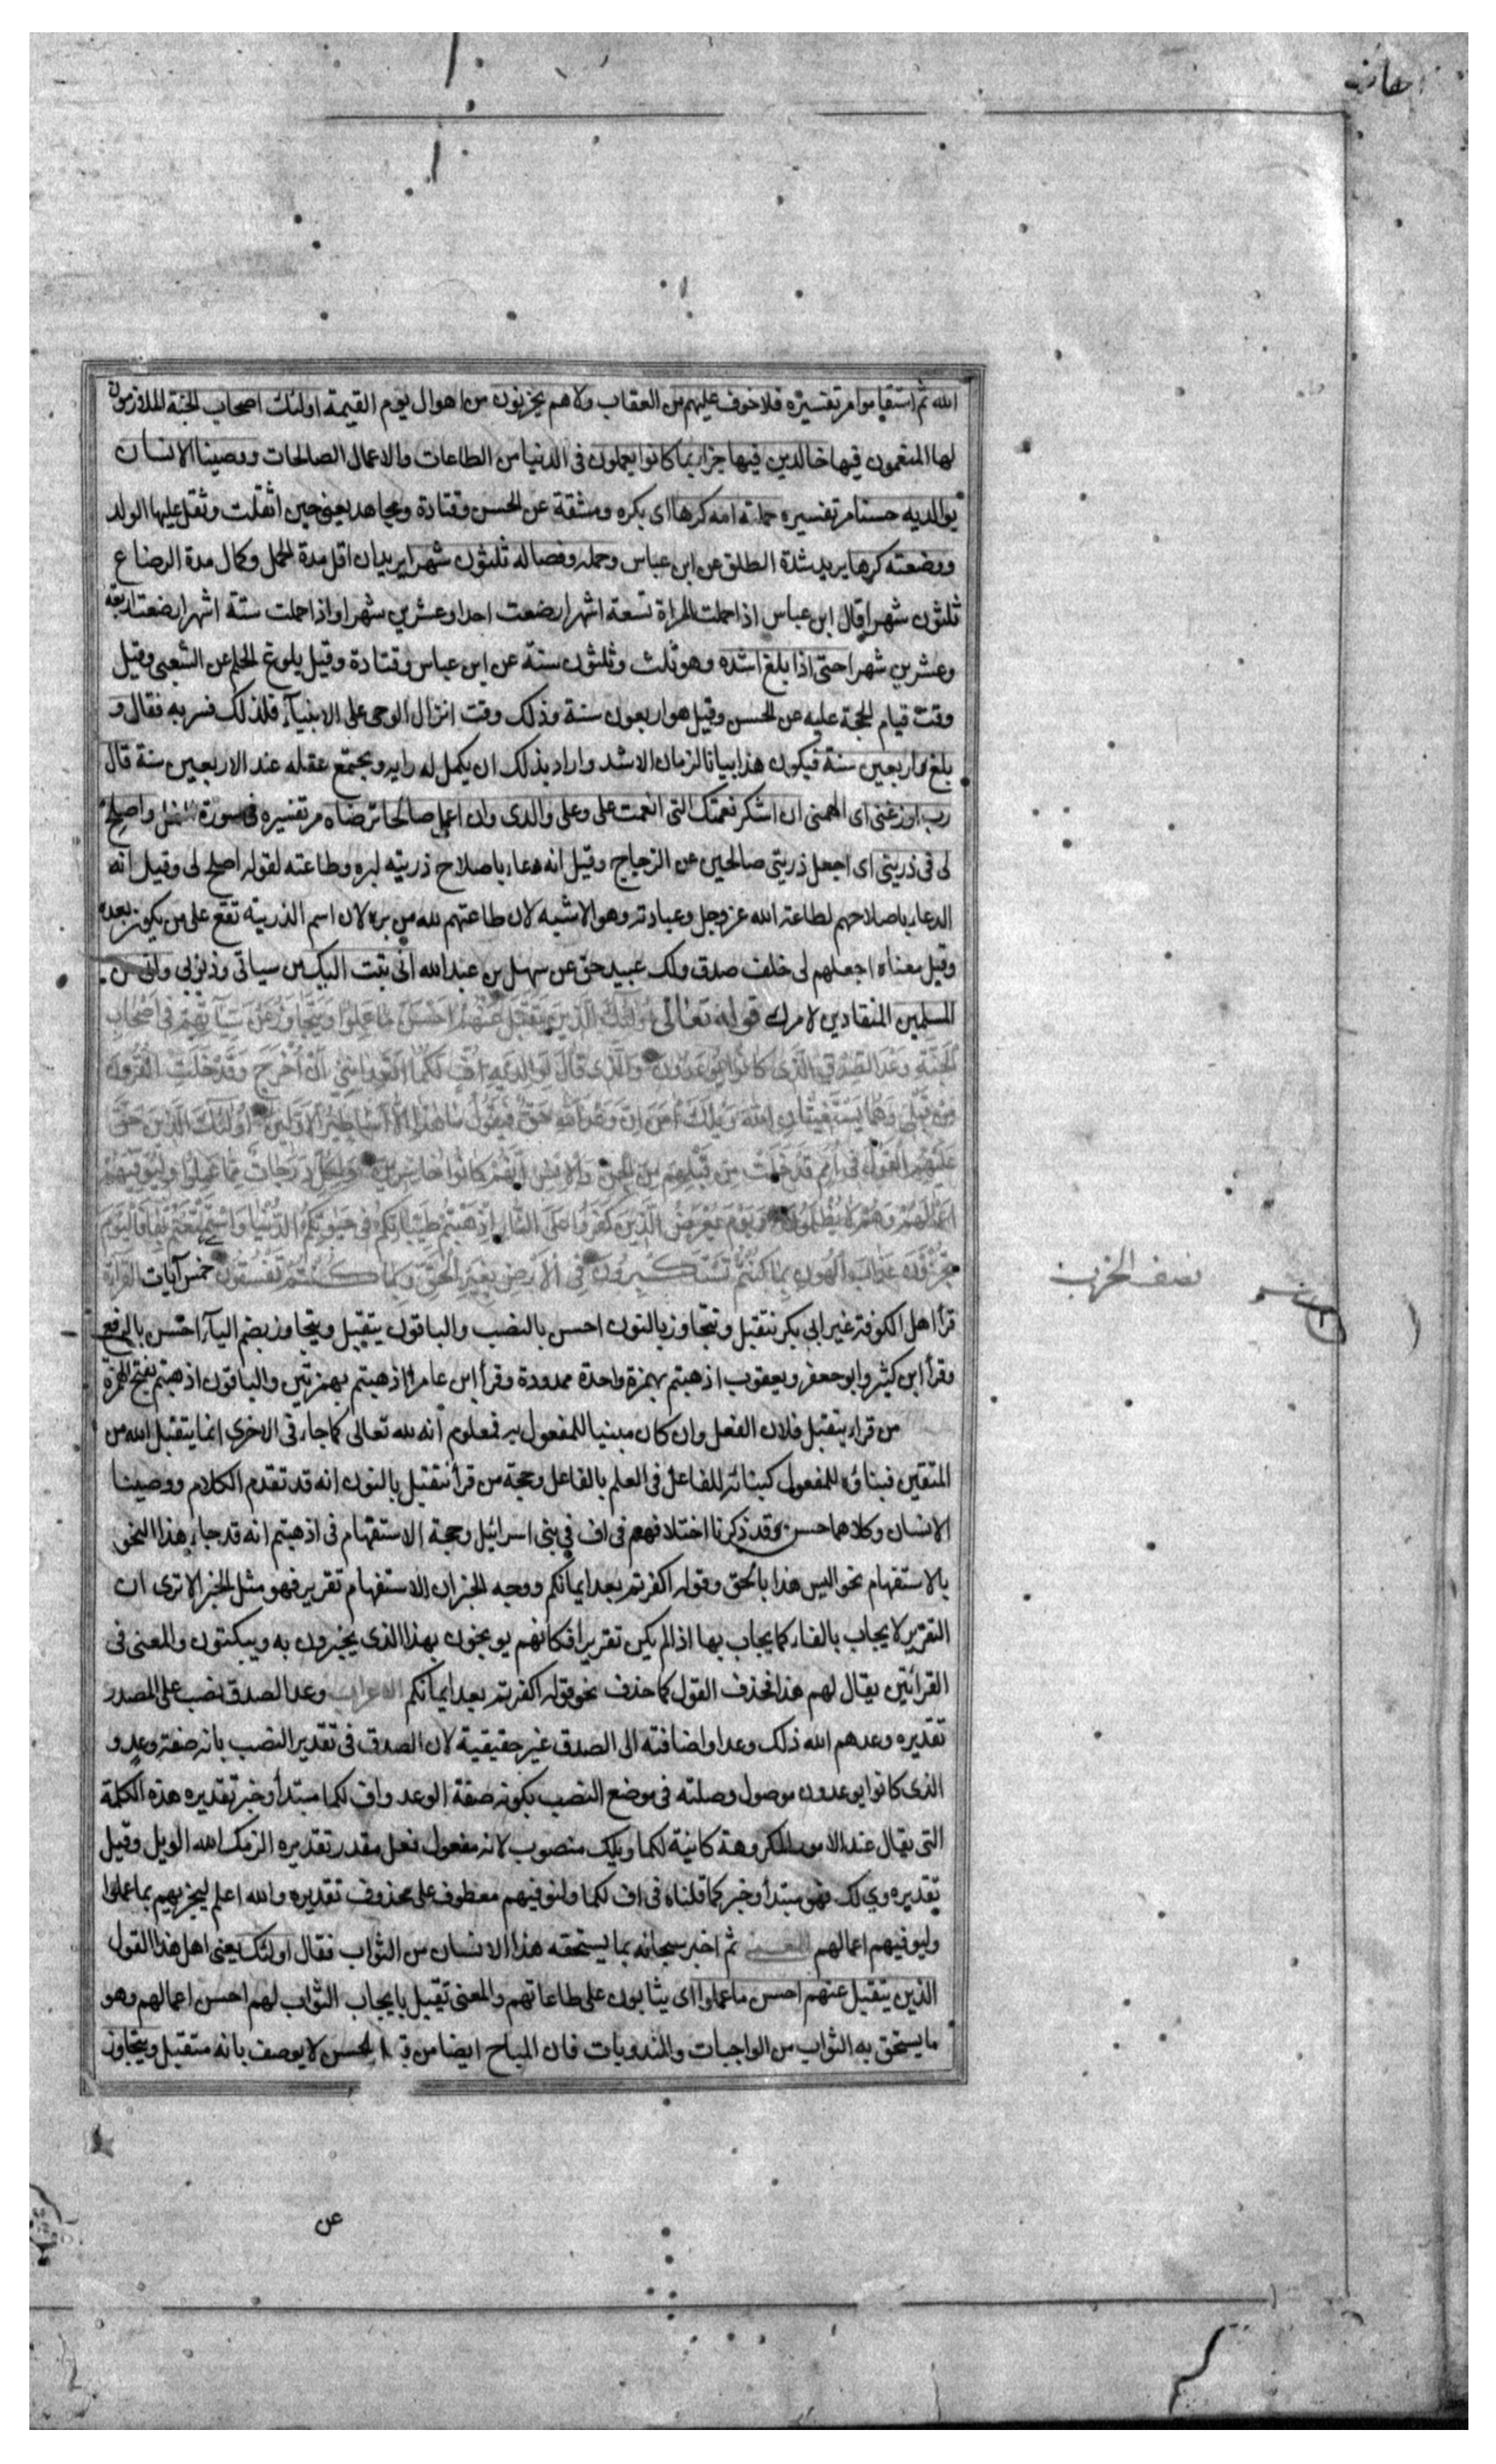 الله ثم استقاموا مر تفسيره فلا خوف عليهم من العقاب ولا هم يحزنون من اهوال يوم القيمة اولئك اصحاب الجنة الملازمون
لها المنعمون فيها خالدين فيها جزاء بما كانوا يعملون فى الدنيا من الطاعات والاعمال الصالحات ووصينا الانسان
بوالديه حسنا مر تفسيره حملته امه كرها اى بكره ومشقة عن الحسن وقتادة ومجاهد يعنى حين اثقلت وثقل عليها الولد
ووضعته كرها يريد شدة الطلق عن ابن عباس وحمله وفصاله ثلثون شهرا يريد ان اقل مدة الحمل وكمال مدة الرضاع
ثلثون شهرا قال ابن عباس اذا حملت المراة تسعة اشهر ارضعت احدا وعشرين شهرا واذا حملت ستة اشهر ارضعت اربعة
وعشرين شهرا حتى اذا بلغ اشده وهو ثلث وثلثون سنة عن ابن عباس وقتادة وقيل بلوغ الحلم عن الشعبى وقيل
وقت قيام الحجة عليه عن الحسن وقيل هو اربعون سنة وذلك وقت انزال الوحى على الانبياء فلذلك فسر به فقال و
بلغ اربعين سنة فيكون هذا بيانا لزمان الاشد واراد بذلك ان يكمل له رايه ويجتمع عقله عند الاربعين سنة قال
رب اوزعنى اى الهمنى ان اشكر نعمتك التى انعمت على وعلى والدى وان اعمل صالحا ترضاه مر تفسيره فى سورة النمل واصلح
لى فى ذريتى اى اجعل ذريتى صالحين عن الزجاج وقيل انه دعاء باصلاح ذريته لبره وطاعته لقوله اصلح لى وقيل انه
الدعاء باصلاحهم لطاعة الله عز وجل وعبادته وهو الاشبه لان طاعتهم لله من بره لان اسم الذرية تقع على من يكون بعده
وقيل معناه اجعلهم لى خلف صدق ولك عبيد حق عن سهل بن عبد الله انى تبت اليك من سياتى وذنوبى وانى من
المسلمين المنقادين لامرك قوله تعالى اولئك الذين يتقبل عنهم احسن ما عملوا ويتجاوز عن سيآتهم فى اصحاب
الجنة وعد الصدق الذى كانوا يوعدون والذى قال لوالديه اف لكما اتعداننى ان اخرج وقد خلت القرون
من قبلى وهما يستغيثان الله ويلك آمن ان وعد الله حق فيقول ما هذا الا اساطير الاولين اولئك الذين حق
عليهم القول فى امم قد خلت من قبلهم من الجن والانس انهم كانوا خاسرين ولكل درجات مما عملوا وليوفيهم
اعمالهم وهم لا يظلمون ويوم يعرض الذين كفروا على النار اذهبتم طيباتكم فى حيوتكم الدنيا واستمتعتم بها فاليوم
تجزون عذاب الهون بما كنتم تستكبرون فى الارض بغير الحق وبما كنتم تفسقون خمس آيات القراءة
نصف الحزب
قرأ اهل الكوفة غير ابى بكر نتقبل ونتجاوز بالنون احسن بالنصب والباقون يتقبل ويتجاوز بضم الياء احسن بالرفع
وقرأ ابن كثير وابو جعفر ويعقوب اذهبتم بهمزة واحدة ممدودة وقرأ ابن عامر أاذهبتم بهمزتين والباقون اذهبتم بفتح الهمزة
من قراء يتقبل فلان الفعل وان كان مبنيا للمفعول به فمعلوم انه لله تعالى كما جاء فى الاخرى انما يتقبل الله من
المتقين فبناؤه للمفعول كبنائه للفاعل فى العلم بالفاعل وحجة من قرأ نتقبل بالنون انه قد تقدم الكلام ووصينا
الانسان وكلاهما حسن وقد ذكرنا اختلافهم فى اف فى بنى اسرائيل وحجة الاستفهام فى اذهبتم انه قد جاء هذا النحو
بالاستفهام نحو اليس هذا بالحق وقوله اكفرتم بعد ايمانكم ووجه الخبر ان الاستفهام تقرير فهو مثل الخبر الا ترى ان
التقرير لا يجاب بالفاء كما يجاب بها اذا لم يكن تقريرا فكانهم يوبخون بهذا الذى يخبرون به ويبكتون والمعنى فى
القرائتين يقال لهم هذا فحذف القول كما حذف نحو قوله اكفرتم بعد ايمانكم الاعراب وعد الصدق نصب على المصدر
تقديره وعدهم الله ذلك وعدا واضافته الى الصدق غير حقيقية لان الصدق فى تقدير النصب بانه صفة وعد و
الذى كانوا يوعدون موصول وصلته فى موضع النصب بكونه صفة الوعد واف لكما مبتدأ وخبر تقديره هذه الكلمة
التى يقال عند الامور المكروهة كاينة لكما ويلك منصوب لانه مفعول فعل مقدر تقديره الزمك الله الويل وقيل
تقديره وى لك فهو مبتدأ وخبر كما قلناه فى اف لكما ولنوفيهم معطوف على محذوف تقديره والله اعلم ليجزيهم بما عملوا
وليوفيهم اعمالهم المعنى ثم اخبر سبحانه بما يستحقه هذا الانسان من الثواب فقال اولئك يعنى اهل هذا القول
الذين يتقبل عنهم احسن ما عملوا اى يثابون على طاعاتهم والمعنى تقبل بايجاب الثواب لهم احسن اعمالهم وهو
ما يستحق به الثواب من الواجبات والمندوبات فان المباح ايضا من قبيل الحسن لا يوصف بانه متقبل ويتجاوز
عن